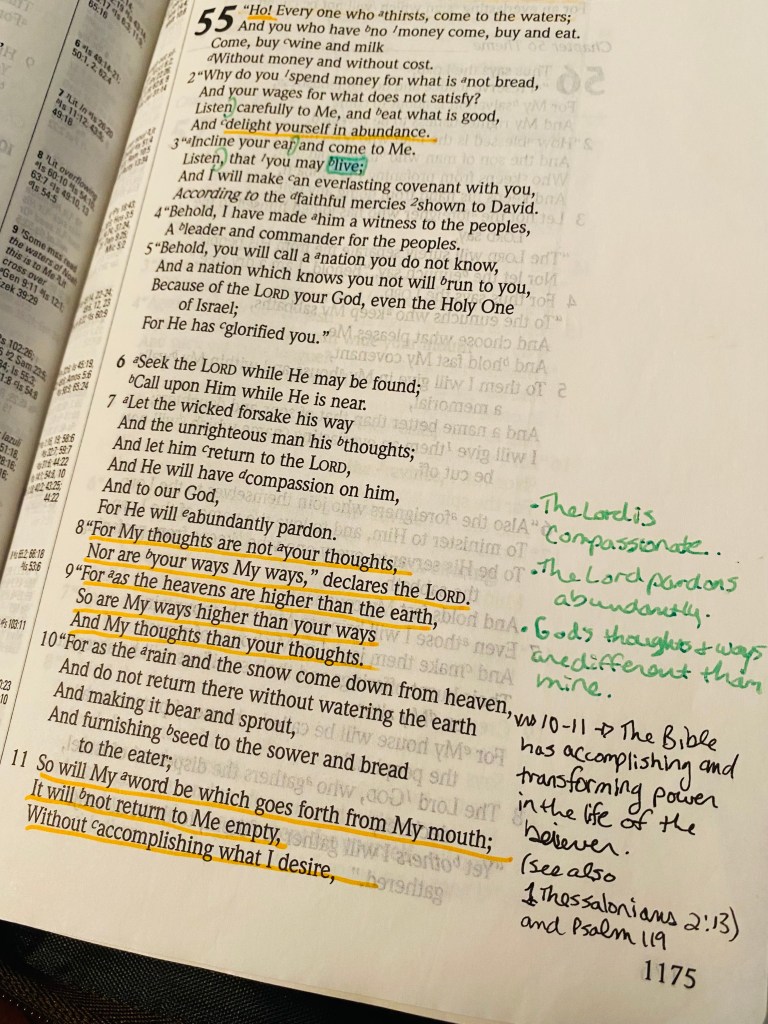 55 “Ho! Every one who ᵃthirsts, come to the waters;
And you who have ᵇno ¹money come, buy and eat.
Come, buy ᶜwine and milk
ᵈWithout money and without cost.
2 “Why do you ¹spend money for what is ᵃnot bread,
And your wages for what does not satisfy?
Listen carefully to Me, and ᵇeat what is good,
And ᶜdelight yourself in abundance.
3 “ᵃIncline your ear and come to Me.
Listen, that ¹you may ᵇlive;
And I will make ᶜan everlasting covenant with you,
According to the ᵈfaithful mercies ²shown to David.
4 “Behold, I have made ᵃhim a witness to the peoples,
A ᵇleader and commander for the peoples.
5 “Behold, you will call a ᵃnation you do not know,
And a nation which knows you not will ᵇrun to you,
Because of the LORD your God, even the Holy One
of Israel;
For He has ᶜglorified you.”
6 ᵃSeek the LORD while He may be found;
ᵇCall upon Him while He is near.
7 ᵃLet the wicked forsake his way
And the unrighteous man his ᵇthoughts;
And let him ᶜreturn to the LORD,
And He will have ᵈcompassion on him,
And to our God,
For He will ᵉabundantly pardon.
8 “For My thoughts are not ᵃyour thoughts,
Nor are ᵇyour ways My ways,” declares the LORD.
9 “For ᵃas the heavens are higher than the earth,
So are My ways higher than your ways
And My thoughts than your thoughts.
10 “For as the ᵃrain and the snow come down from heaven,
And do not return there without watering the earth
And making it bear and sprout,
And furnishing ᵇseed to the sower and bread
to the eater;
11 So will My ᵃword be which goes forth from My mouth;
It will ᵇnot return to Me empty,
Without ᶜaccomplishing what I desire,
• The Lord is
Compassionate..
• The Lord pardons
abundantly.
• God's thoughts + ways
are different than
mine.
vv 10-11 → The Bible
has accomplishing and
transforming power
in the life of the
believer.
(see also
1 Thessalonians 2:13)
and Psalm 119
1175